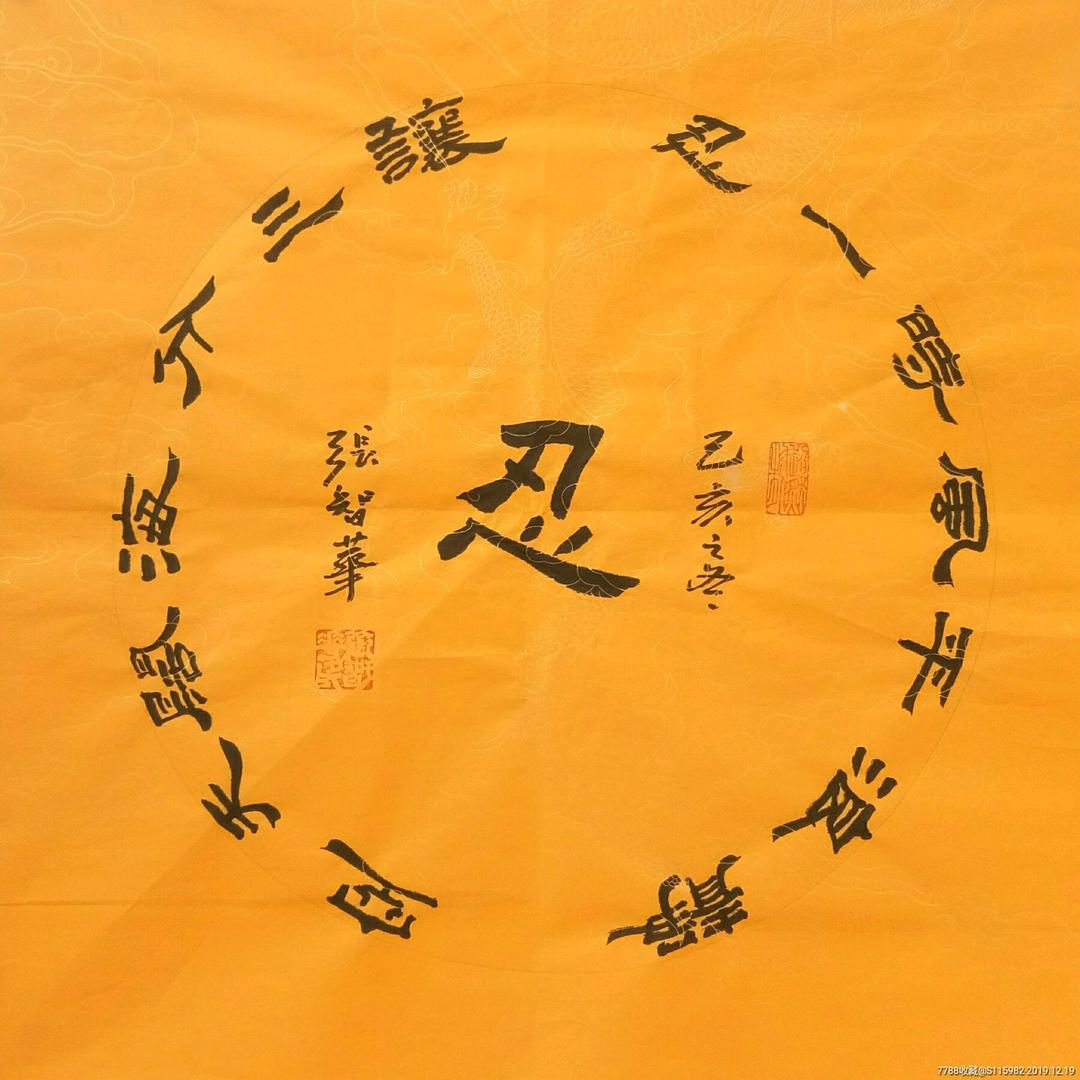 忍一時風平浪靜
讓三分海闊天空
己亥之冬
忍
張智華
7788收藏@S115982-2019.12.19